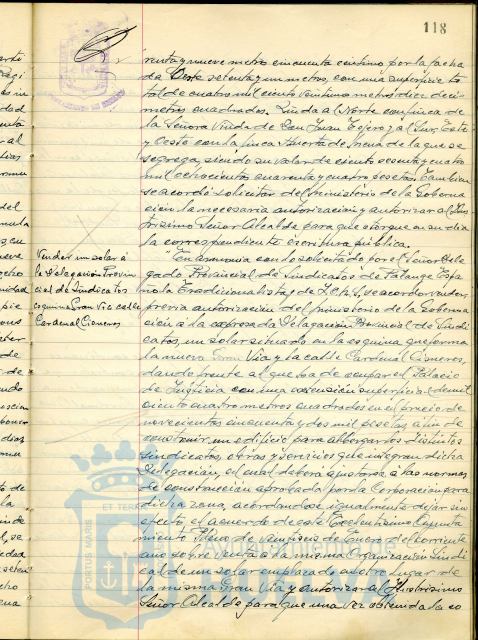 118
renta y nueve metros cincuenta centimos por la facha
da Oeste setenta y un metros, con una superficie to
tal de cuatro mil ciento veintiun metros diez deci-
metros cuadrados. Linda al Norte con finca de
la Señora Viuda de Don Juan Tejero, y al Sur, Este
y Oeste con la finca Huerta de Mena de la que se
segrega, siendo su valor de ciento sesenta y cuatro
mil ochocientos cuarenta y cuatro pesetas. Tambien
se acordó solicitar del Ministerio de la Goberna
cion la necesaria autorizacion y autorizar al Ilus
trisimo Señor Alcalde para que otorgue en su dia
la correspondiente escritura pública.
Vender un solar á
la Delegación Provin
cial de Sindicatos
esquina Gran Via calle
Cardenal Cisneros
En armonia con lo solicitado por el Señor Dele
gado Provincial de Sindicatos de Falange Espa
ñola Tradicionalista y de J.O.N.S, se acordó vender,
previa autorizacion del Ministerio de la Goberna
cion a la expresada Delegación Provincial de Sindi
catos, un solar situado en la esquina que forma
la nueva Gran Via y la calle Cardenal Cisneros,
dando frente al que ha de ocupar el Palacio
de Justicia con una extension superficial de mil
ciento cuatro metros cuadrados en el precio de
novecientas cincuenta y dos mil pesetas, a fin de
construir un edificio para albergar los distintos
sindicatos, obras y servicios que integran dicha
Delegacion, el cual deberá ajustarse a las normas
de construccion aprobada por la Corporacion para
dicha zona, acordandose igualmente dejar sin
efecto, el acuerdo de este Excelentisimo Ayunta
miento Pleno de veintiseis de Enero del corriente
año sobre venta a la misma Organizacion Sindi
cal de un solar emplazado en otro lugar de
la misma Gran Via y autorizar al Ilustrisimo
Señor Alcalde para que una vez obtenida la co
PORTUS MARIS ET TERRA